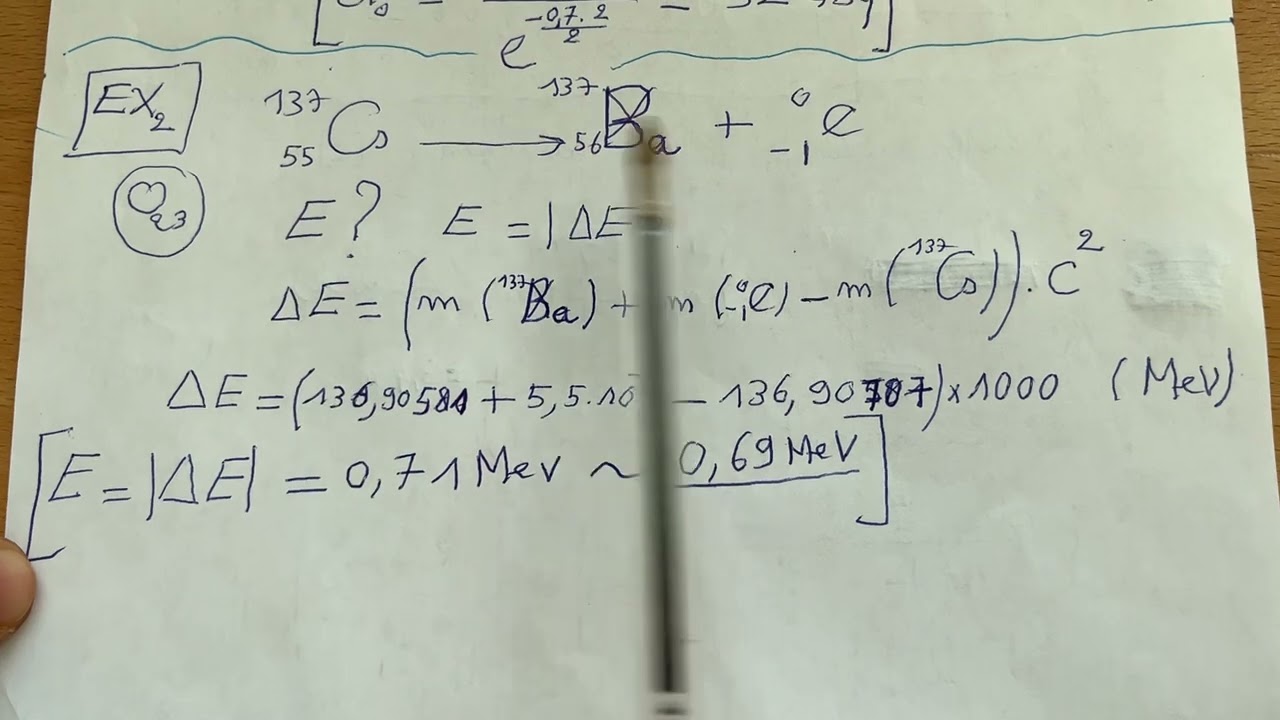 e^(-0,7.2/2)
EX2 ¹³⁷₅₅Cs ⟶ ¹³⁷₅₆Ba + ⁰₋₁e
Q3 E? E = |ΔE
ΔE = (m(¹³⁷Ba) + m(⁰₋₁e) − m(¹³⁷Cs)).C²
ΔE = (136,90581 + 5,5.10 − 136,90707) × 1000 (MeV)
[E = |ΔE| = 0,71 MeV ~ 0,69 MeV]